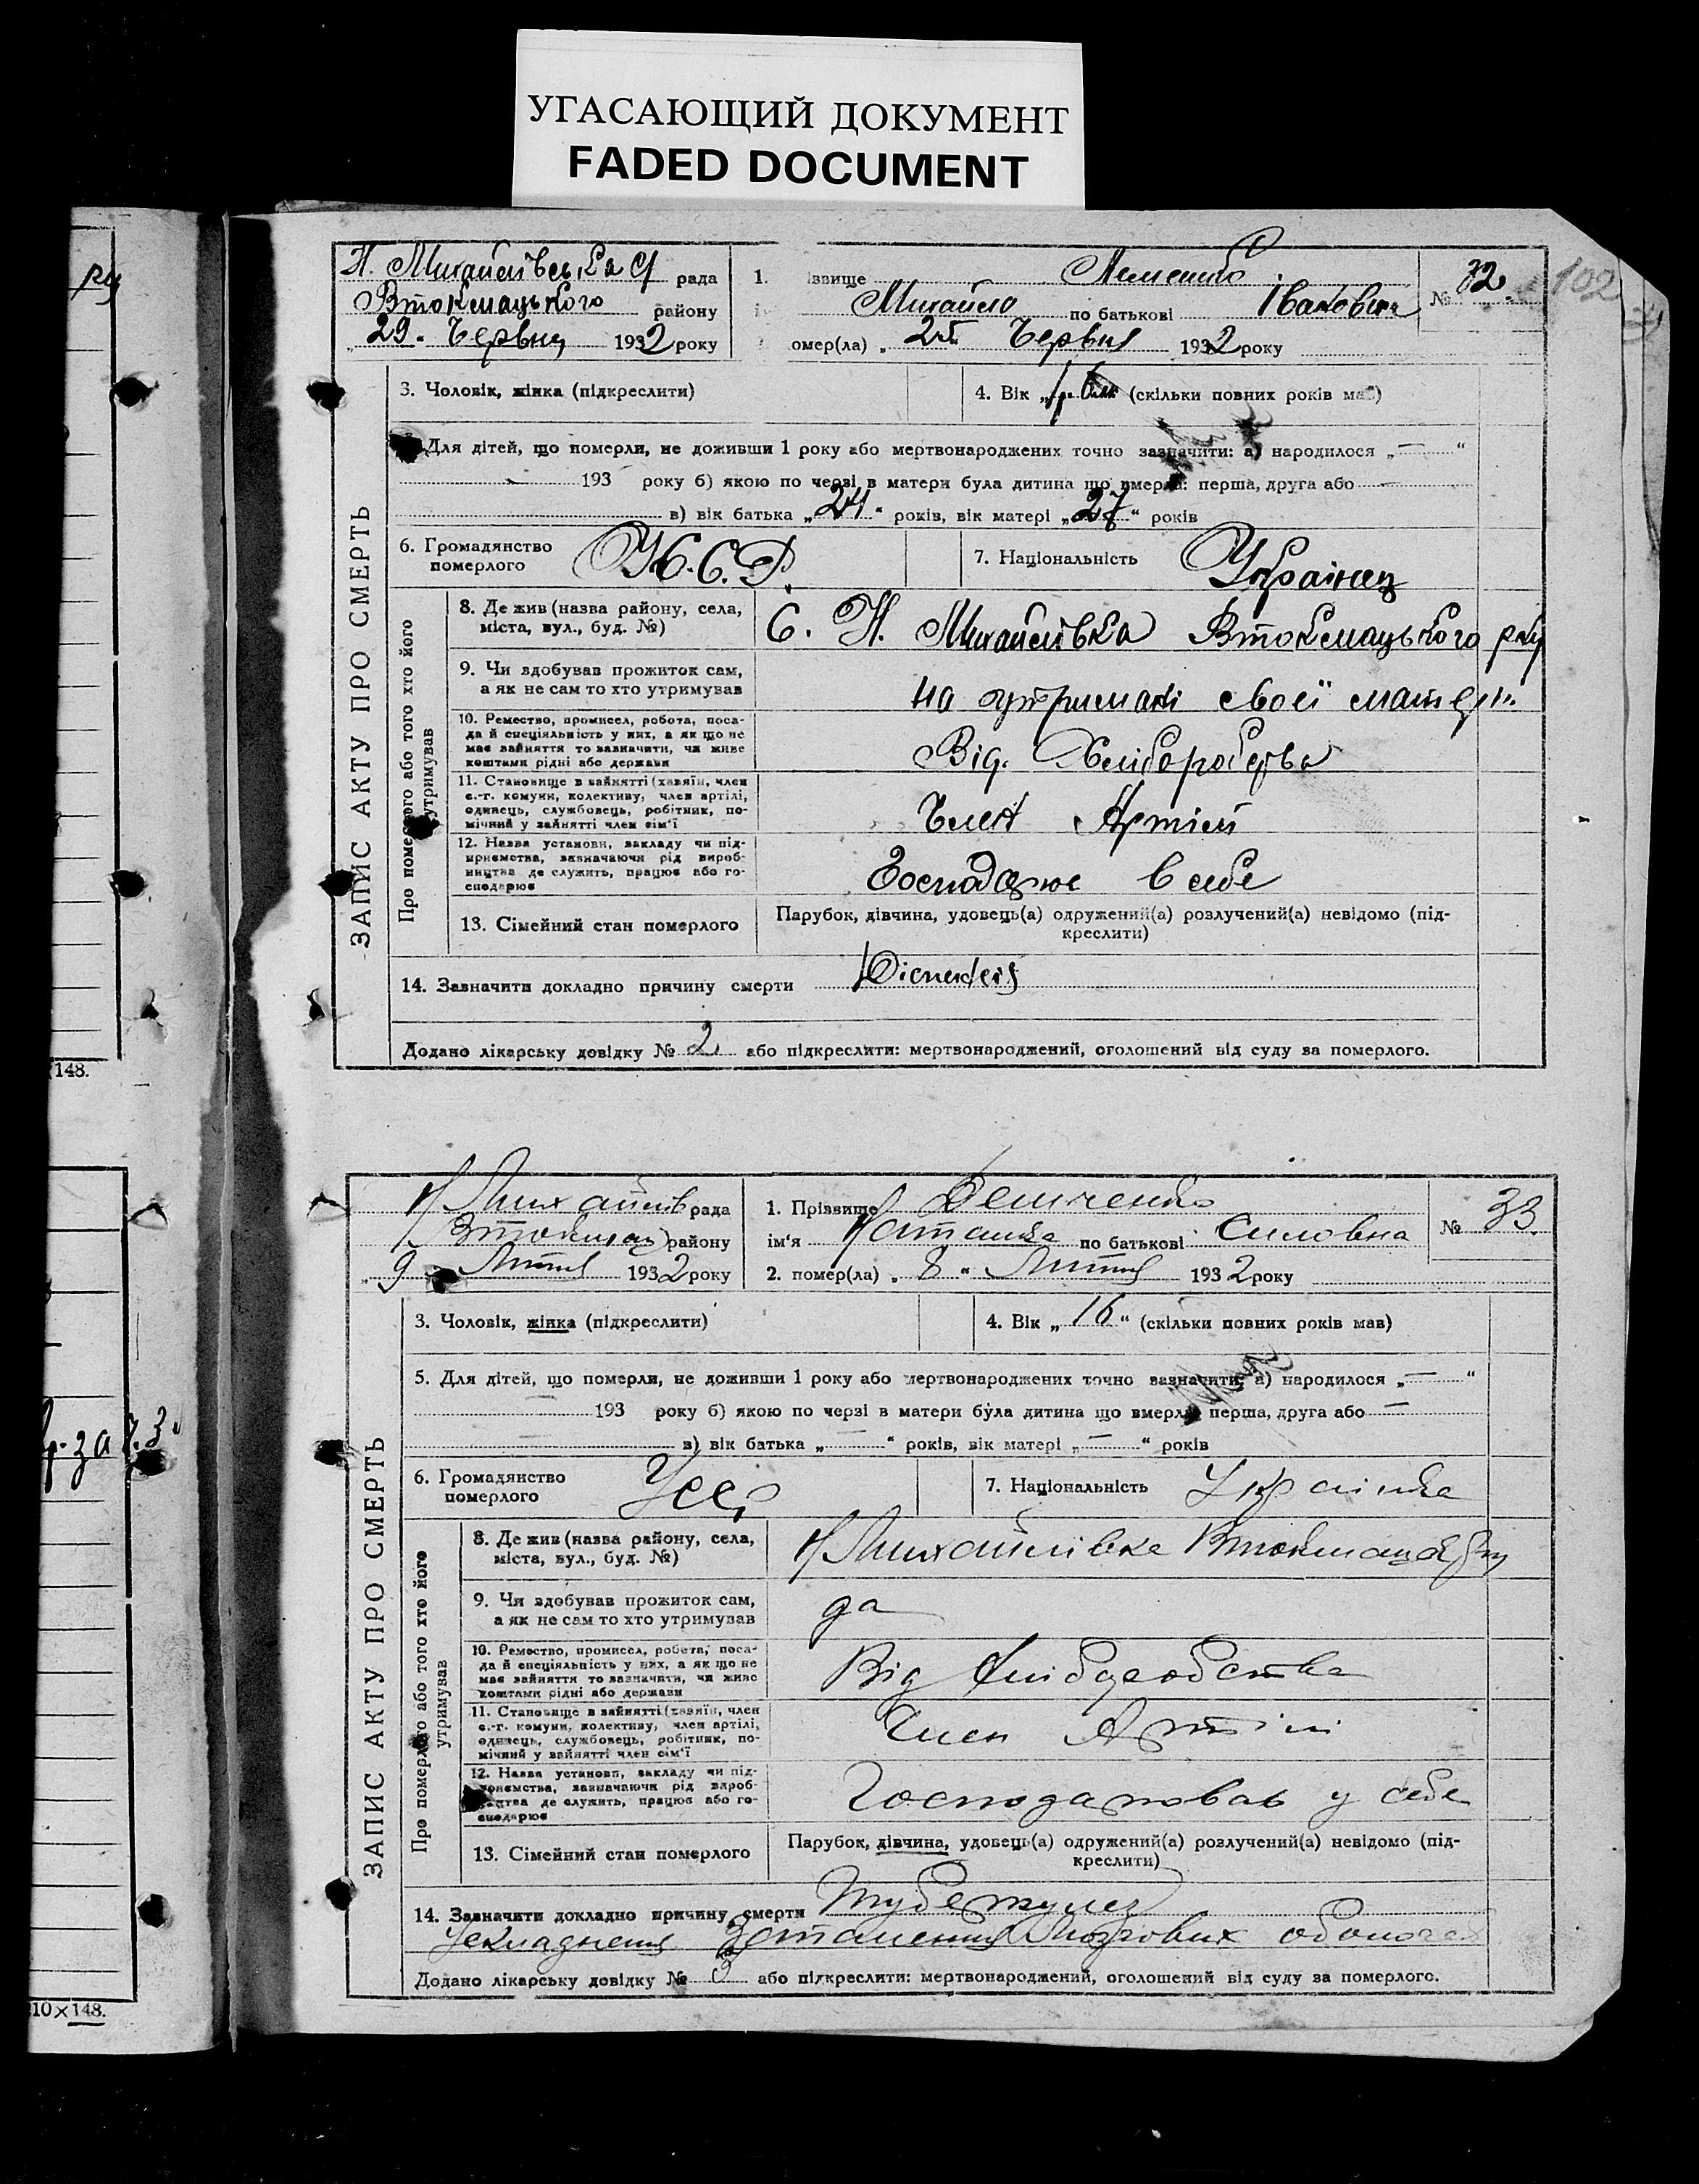 УГАСАЮЩИЙ ДОКУМЕНТ
FADED DOCUMENT
102
Н. Михайлівська С/ рада
Втокмацького району
„ 29. Червня 1932 року
1. ізвище
Михайло по батькові Іванович
№ 32
омер(ла) „ 25 Червня 1932 року
ЗАПИС АКТУ ПРО СМЕРТЬ
3. Чоловік, жінка (підкреслити)
4. Вік „ (скільки повних років мав)
Для дітей, що померли, не доживши 1 року або мертвонароджених точно зазначити: а) народилося „ — “
193 року б) якою по черзі в матери була дитина що вмерла: перша, друга або
в) вік батька „ 24 “ років, вік матері „ 27 “ років
6. Громадянство померлого У.С.С.Р.
7. Національність Українец
Про померлого або того хто його утримував
8. Де жив (назва району, села,
міста, вул., буд. №)
С. Н. Михайлівка Втокмацького р-ну
9. Чи здобував прожиток сам,
а як не сам то хто утримував
на утриманні своєї матери
10. Ремество, промисел, робота, поса-
да й спеціяльність у них, а як що не
має зайняття то зазначити, чи живе
коштами рідні або держави
Від. Хліборобства
11. Становище в зайнятті (хазяїн, член
с.-г. комуни, колективу, член артілі,
одинець, службовець, робітник, по-
мічний у зайнятті член сім'ї
Член Артілі
12. Назва установи, закладу чи під-
приємства, зазначаючи рід вироб-
ництва де служить, працює або го-
сподарює
Господарює в себе
13. Сімейний стан померлого
Парубок, дівчина, удовець(а) одружений(а) розлучений(а) невідомо (під-
креслити)
14. Зазначити докладно причину смерти Діспепсія
Додано лікарську довідку № 2 або підкреслити: мертвонароджений, оголошений від суду за померлого.
148.
Н/Михайлів рада
Втокмац району
„ 9 Липня 1932 року
1. Прізвище Демченко
ім'я Наталка по батькові Силовна
№ 33.
2. помер(ла) „ 8 “ Липня 1932 року
ЗАПИС АКТУ ПРО СМЕРТЬ
3. Чоловік, жінка (підкреслити)
4. Вік „ 16 “ (скільки повних років мав)
5. Для дітей, що померли, не доживши 1 року або мертвонароджених точно зазначити: а) народилося „ — “
193 року б) якою по черзі в матери була дитина що вмерла: перша, друга або —
в) вік батька „ — “ років, вік матері „ — “ років
6. Громадянство померлого УССР
7. Національність Українка
Про померлого або того хто його утримував
8. Де жив (назва району, села,
міста, вул., буд. №)
Н/Михайлівка Втокмацьк р-ну
9. Чи здобував прожиток сам,
а як не сам то хто утримував
да
10. Ремество, промисел, робота, поса-
да й спеціяльність у них, а як що не
має зайняття то зазначити, чи живе
коштами рідні або держави
Від хліборобства
11. Становище в зайнятті (хазяїн, член
с.-г. комуни, колективу, член артілі,
одинець, службовець, робітник, по-
мічний у зайнятті член сім'ї
Член Артілі
12. Назва установи, закладу чи під-
приємства, зазначаючи рід вироб-
ництва де служить, працює або го-
сподарює
Господарював у себе
13. Сімейний стан померлого
Парубок, дівчина, удовець(а) одружений(а) розлучений(а) невідомо (під-
креслити)
14. Зазначити докладно причину смерти Туберкулез
Ускладнення Запалення Мозгових оболочек
Додано лікарську довідку № 3 або підкреслити: мертвонароджений, оголошений від суду за померлого.
10×148.